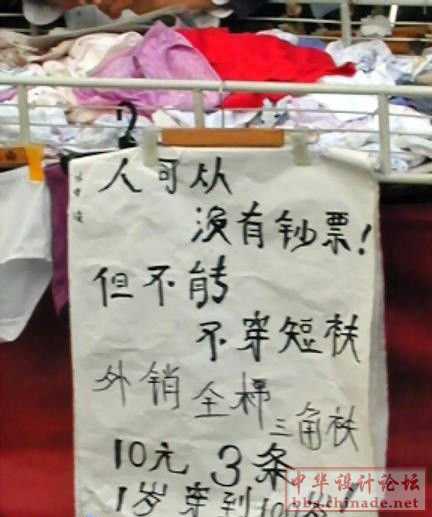 人可从
没有钞票!
但不能
不穿短衭
外销全棉三角衭
10元3条
1岁穿到10
中华设计论坛
bbs.chinade.net